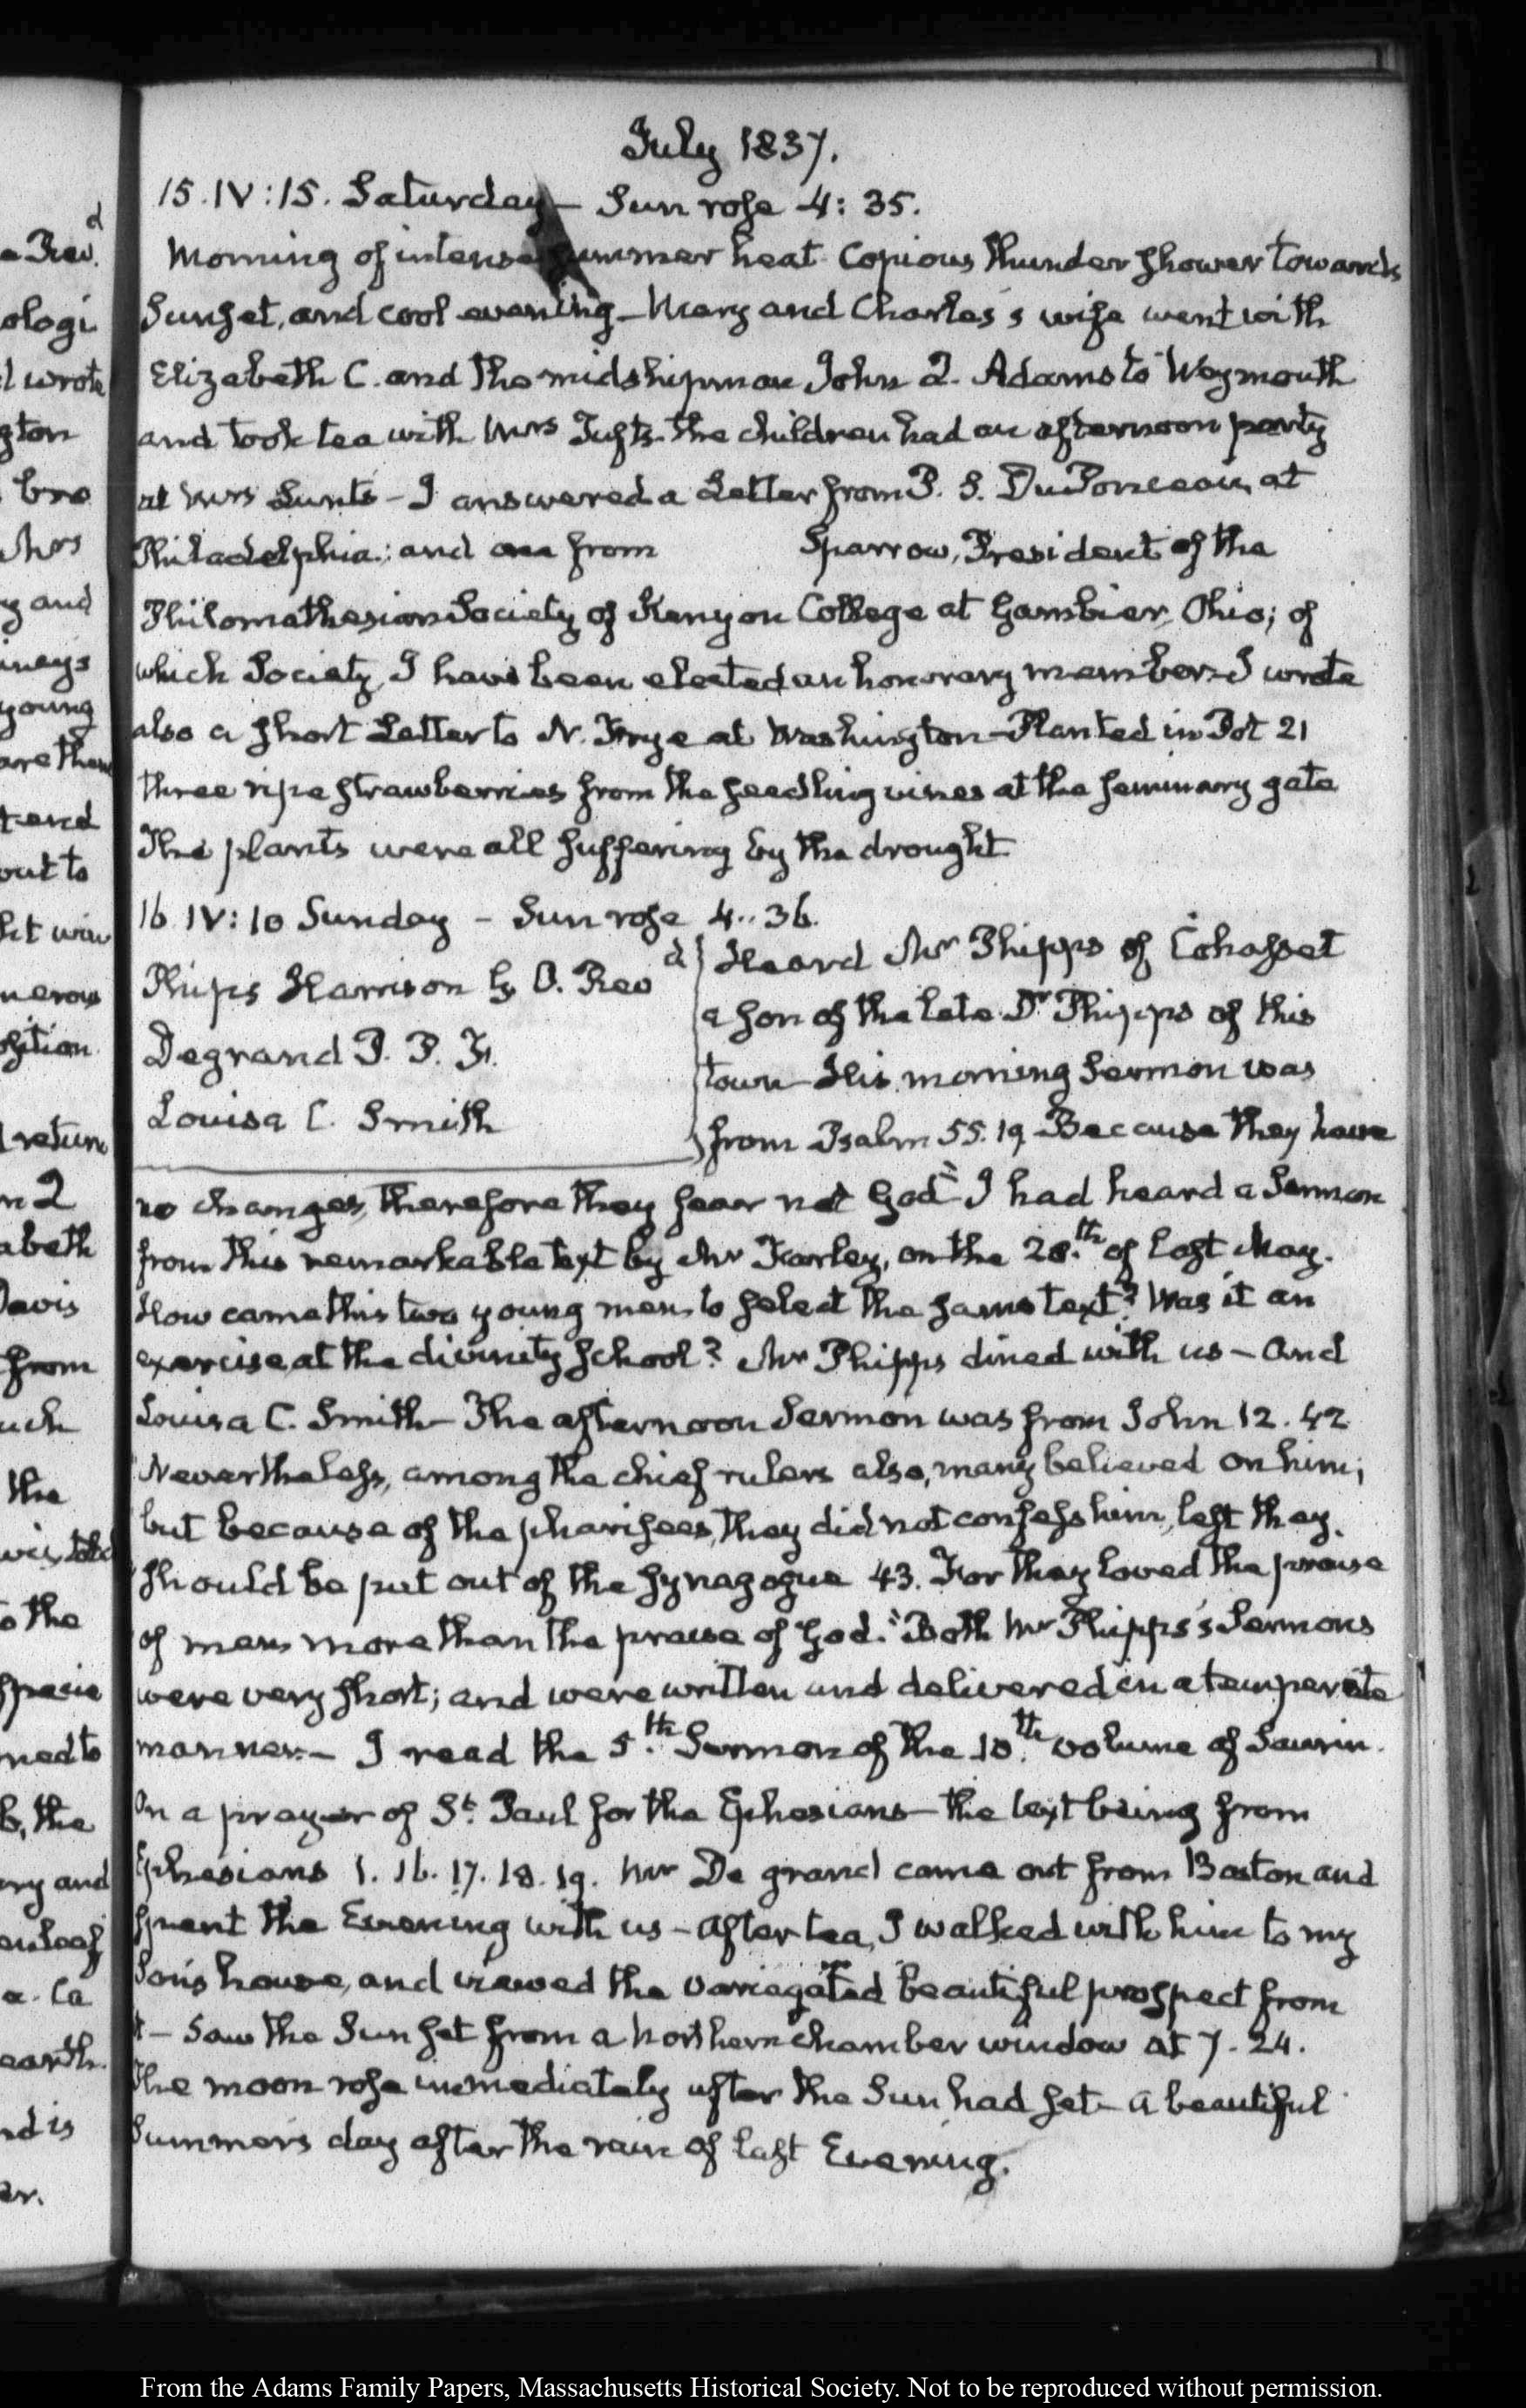 July 1837.
15. IV:15. Saturday — Sun rose 4:35.
Morning of intense summer heat. Copious thunder shower towards
Sunset, and cool evening — Mary and Charles's wife went with
Elizabeth C. and the midshipman John Q. Adams to Weymouth
and took tea with Mrs Tufts. The children had an afternoon party
at Mrs Lunt's — I answered a Letter from P. S. DuPonceau, at
Philadelphia; and one from Sparrow, President of the
Philomathesian Society of Kenyon College at Gambier, Ohio; of
which Society I have been elected an honorary member. I wrote
also a short Letter to N. Frye at Washington — Planted in Pot 21
three ripe strawberries from the seedling vines at the seminary gate
The plants were all suffering by the drought.
16. IV:10 Sunday — Sun rose 4..36.
Phips Harrison G. O. Revd
Degrand P. P. F.
Louisa C. Smith
Heard Mr Phipps of Cohasset
a son of the late Dr Phipps of this
town — His morning Sermon was
from Psalm 55.19 Because they have
no changes, therefore they fear not God" I had heard a Sermon
from this remarkable text by Mr Farley, on the 28.th of last May.
How came this two young men to select the same text? Was it an
exercise, at the divinity school? Mr Phipps dined with us — and
Louisa C. Smith — The afternoon Sermon was from John 12.42
Nevertheless, among the chief rulers also, many believed on him;
but because of the pharisees, they did not confess him, lest they
should be put out of the synagogue 43. For they loved the praise
of men more than the praise of God." Both Mr Phipps's Sermons
were very short; and were written and delivered in a temperate
manner. — I read the 5.th Sermon of the 10.th volume of Saurin.
On a prayer of St. Paul for the Ephesians — the text being from
Ephesians 1. 16. 17. 18. 19. Mr De grand came out from Boston and
spent the Evening with us — After tea, I walked with him to my
Son's house, and viewed the variegated beautiful prospect from
it — Saw the Sun set from a Northern chamber window at 7. 24.
The moon rose immediately after the Sun had set — a beautiful
Summer's day after the rain of last Evening.
From the Adams Family Papers, Massachusetts Historical Society. Not to be reproduced without permission.